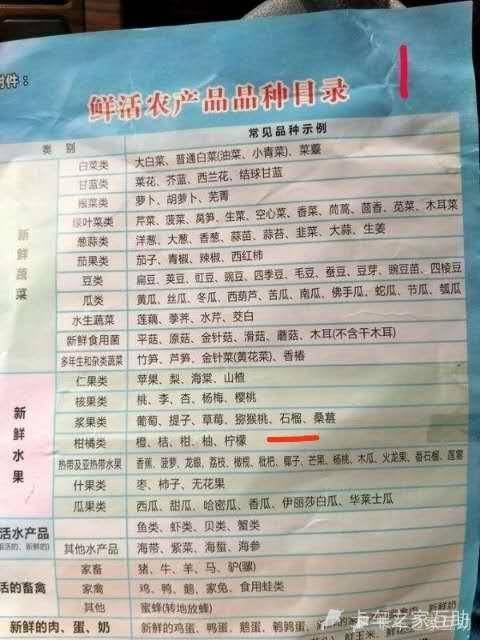 附件：
鲜活农产品品种目录
类 别 常见品种示例
新鲜蔬菜
白菜类 大白菜、普通白菜(油菜、小青菜)、菜薹
甘蓝类 菜花、芥蓝、西兰花、结球甘蓝
根菜类 萝卜、胡萝卜、芜菁
绿叶菜类 芹菜、菠菜、莴笋、生菜、空心菜、香菜、茼蒿、茴香、苋菜、木耳菜
葱蒜类 洋葱、大葱、香葱、蒜苗、蒜苔、韭菜、大蒜、生姜
茄果类 茄子、青椒、辣椒、西红柿
豆类 扁豆、荚豆、豇豆、豌豆、四季豆、毛豆、蚕豆、豆芽、豌豆苗、四棱豆
瓜类 黄瓜、丝瓜、冬瓜、西葫芦、苦瓜、南瓜、佛手瓜、蛇瓜、节瓜、瓠瓜
水生蔬菜 莲藕、荸荠、水芹、茭白
新鲜食用菌 平菇、原菇、金针菇、滑菇、蘑菇、木耳(不含干木耳)
多年生和杂类蔬菜 竹笋、芦笋、金针菜(黄花菜)、香椿
新鲜水果
仁果类 苹果、梨、海棠、山楂
核果类 桃、李、杏、杨梅、樱桃
浆果类 葡萄、提子、草莓、猕猴桃、石榴、桑葚
柑橘类 橙、桔、柑、柚、柠檬
热带及亚热带水果 香蕉、菠萝、龙眼、荔枝、橄榄、枇杷、椰子、芒果、杨桃、木瓜、火龙果、番石榴、莲雾
什果类 枣、柿子、无花果
瓜果类 西瓜、甜瓜、哈密瓜、香瓜、伊丽莎白瓜、华莱士瓜
活水产品 鱼类、虾类、贝类、蟹类
其他水产品 海带、紫菜、海蜇、海参
活的畜禽
家畜 猪、牛、羊、马、驴(骡)
家禽 鸡、鸭、鹅、家兔、食用蛙类
其他 蜜蜂(转地放蜂)
新鲜的肉、蛋、奶 新鲜的鸡蛋、鸭蛋、鹅蛋、鹌鹑蛋
卡车之家互助